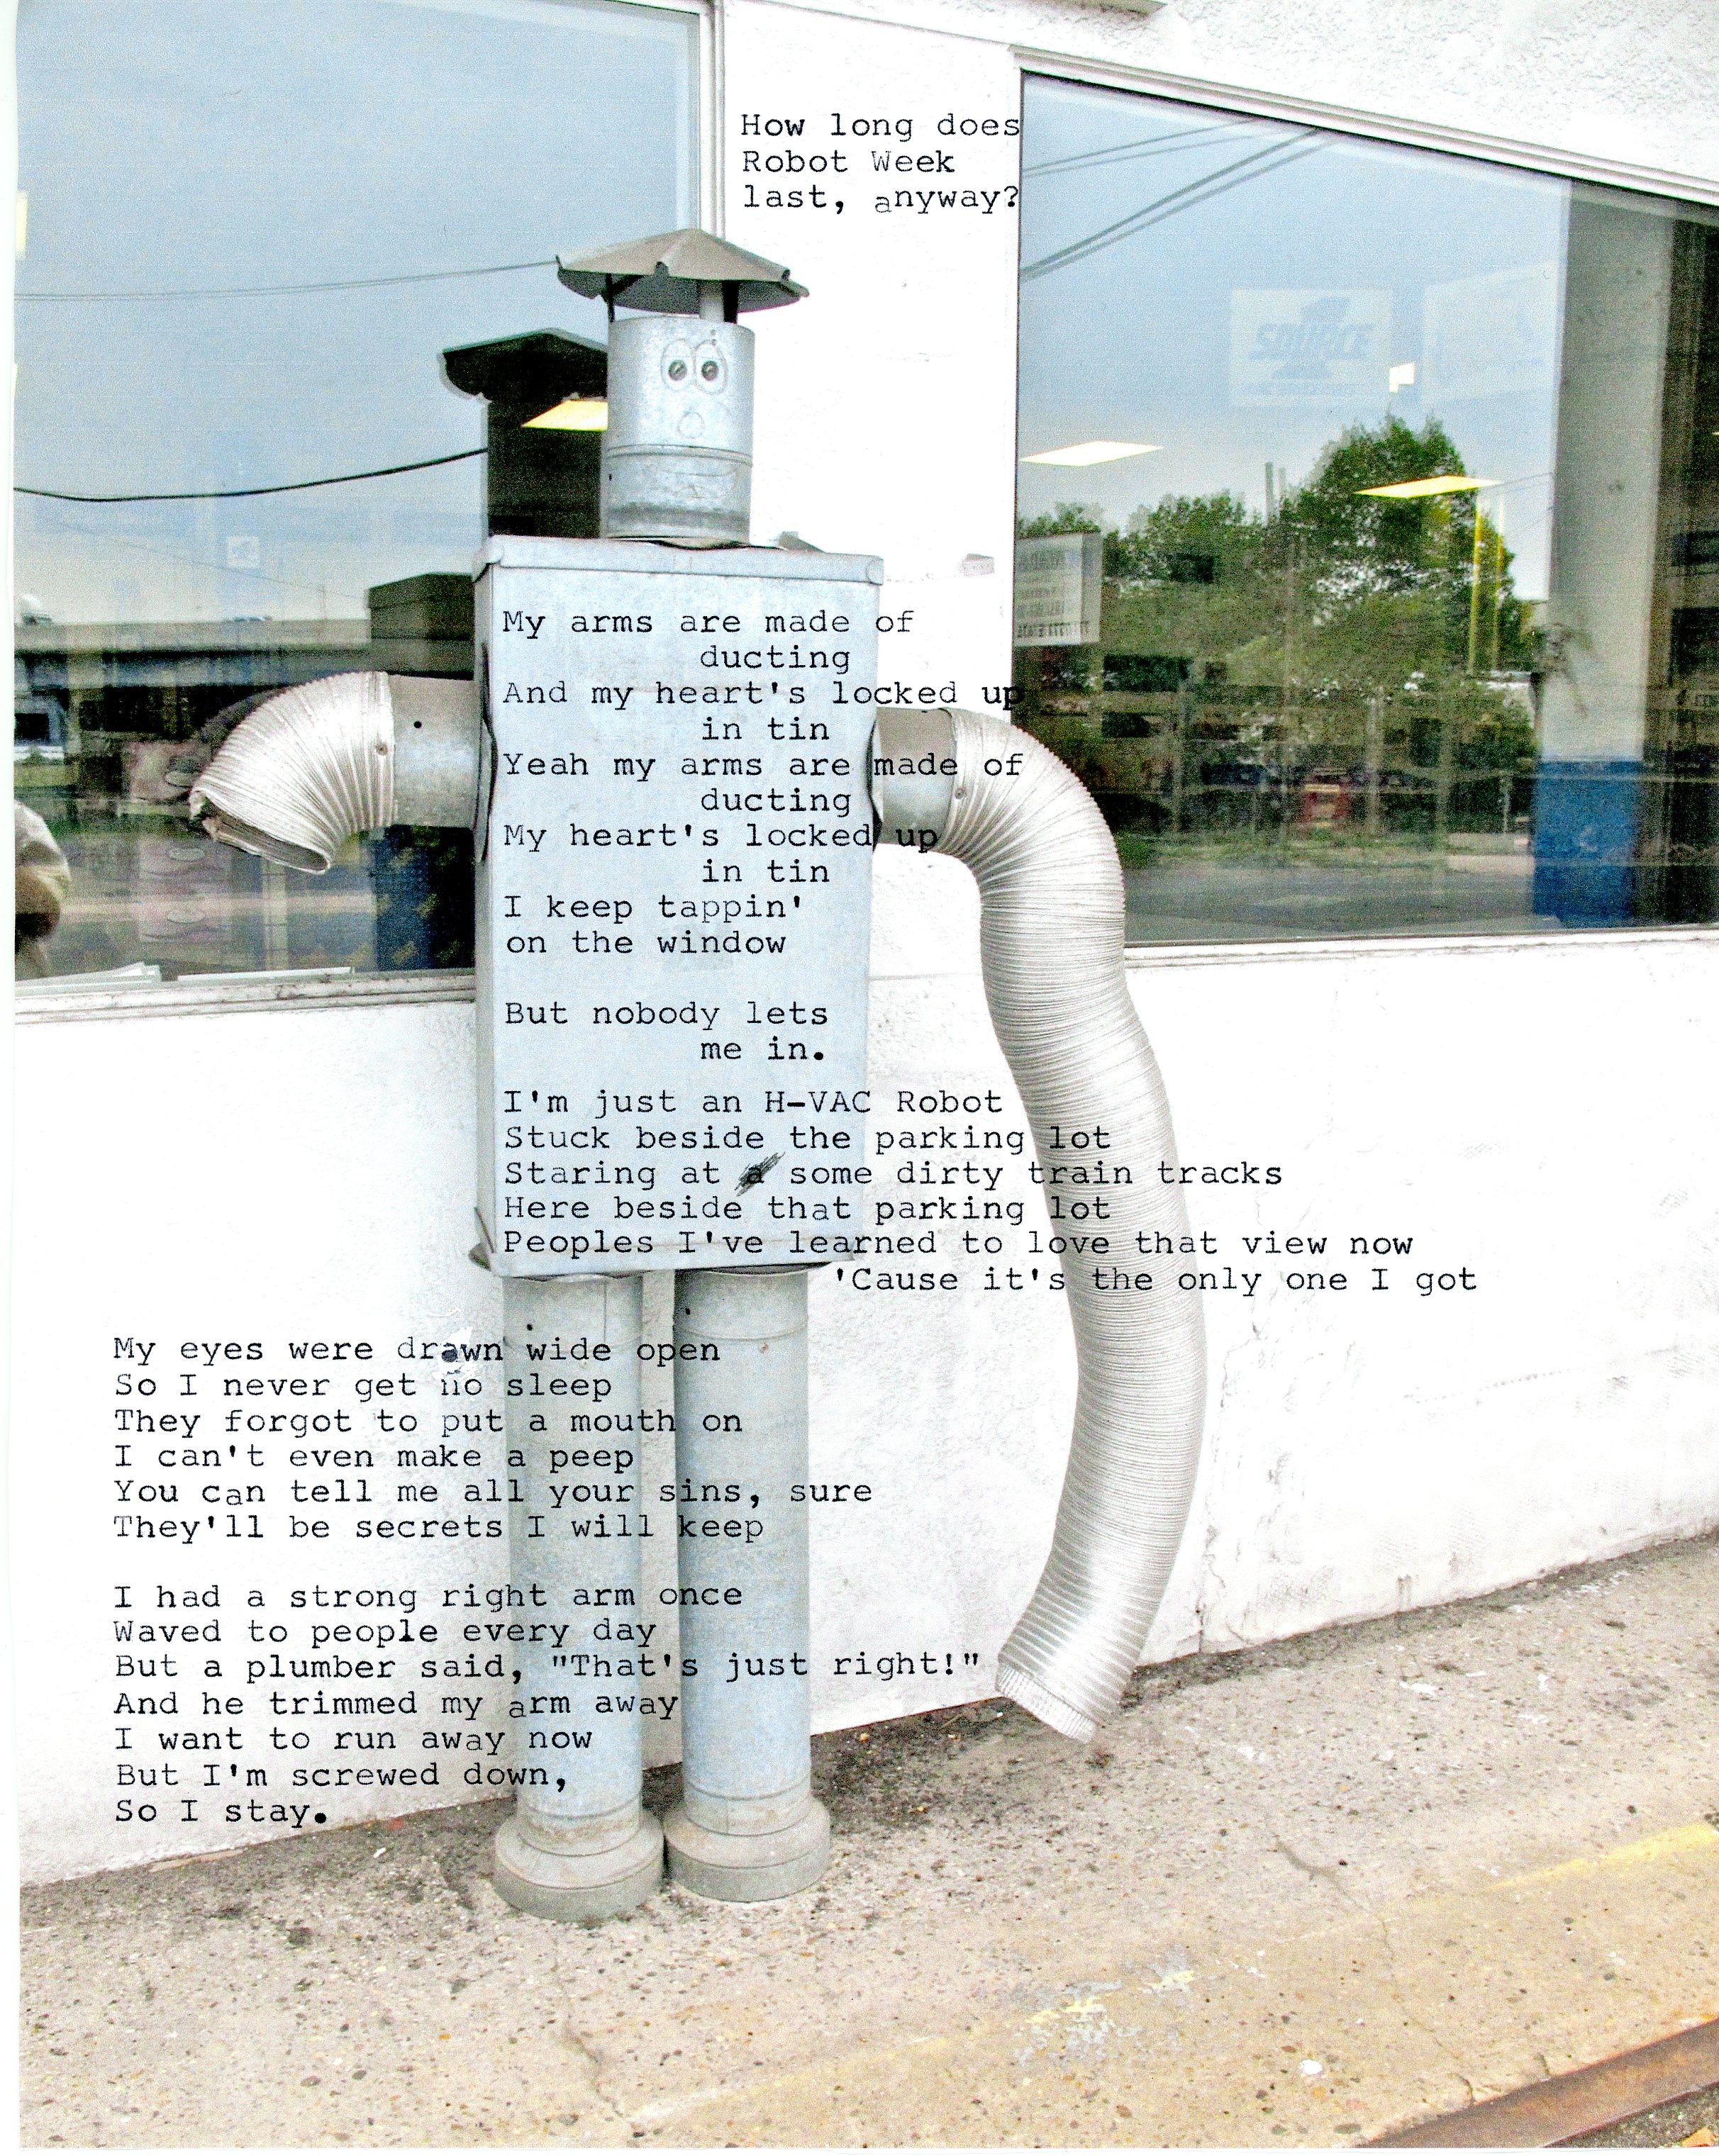 How long does
Robot Week
last, anyway?
SOURCE
My arms are made of
ducting
And my heart's locked up
in tin
Yeah my arms are made of
ducting
My heart's locked up
in tin
I keep tappin'
on the window
But nobody lets
me in.
I'm just an H-VAC Robot
Stuck beside the parking lot
Staring at some dirty train tracks
Here beside that parking lot
Peoples I've learned to love that view now
'Cause it's the only one I got
My eyes were drawn wide open
So I never get no sleep
They forgot to put a mouth on
I can't even make a peep
You can tell me all your sins, sure
They'll be secrets I will keep
I had a strong right arm once
Waved to people every day
But a plumber said, "That's just right!"
And he trimmed my arm away
I want to run away now
But I'm screwed down,
So I stay.